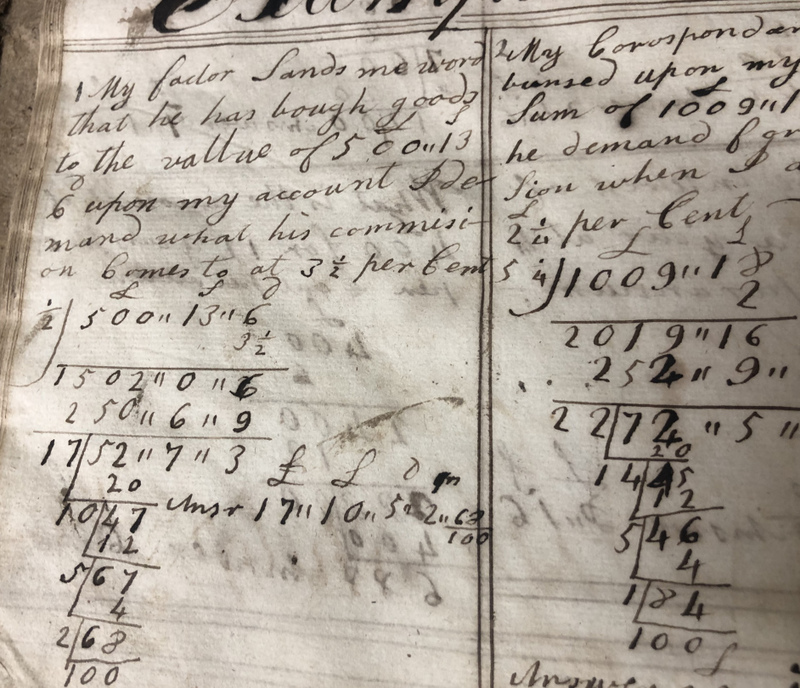 1 My factor Sands me word
that he has bough goods
£ s
to the vallue of 500,,13
d
6 upon my account I de-
mand what his commisi-
on Comes to at 3 1/2 per Cent
£ s d
1/2 | 500,,13,,6
3 1/2
1502,,0,,6
250,,6,,9
17/52,,7,,3
20
10/47
12
5/67
4
2/68
100
£ s d qrs
Answr 17,,10,,5,,2,,68
100
2 My Corospondan
bursed upon my
£
Sum of 1009,,1
he demand
sion when I
£
2 1/4 per Cent
£ s
5 1/4 | 1009,,18
2
2019,,16
252,,9,,
22/72,,5,,
20
14/45
12
5/46
4
1/84
100
£